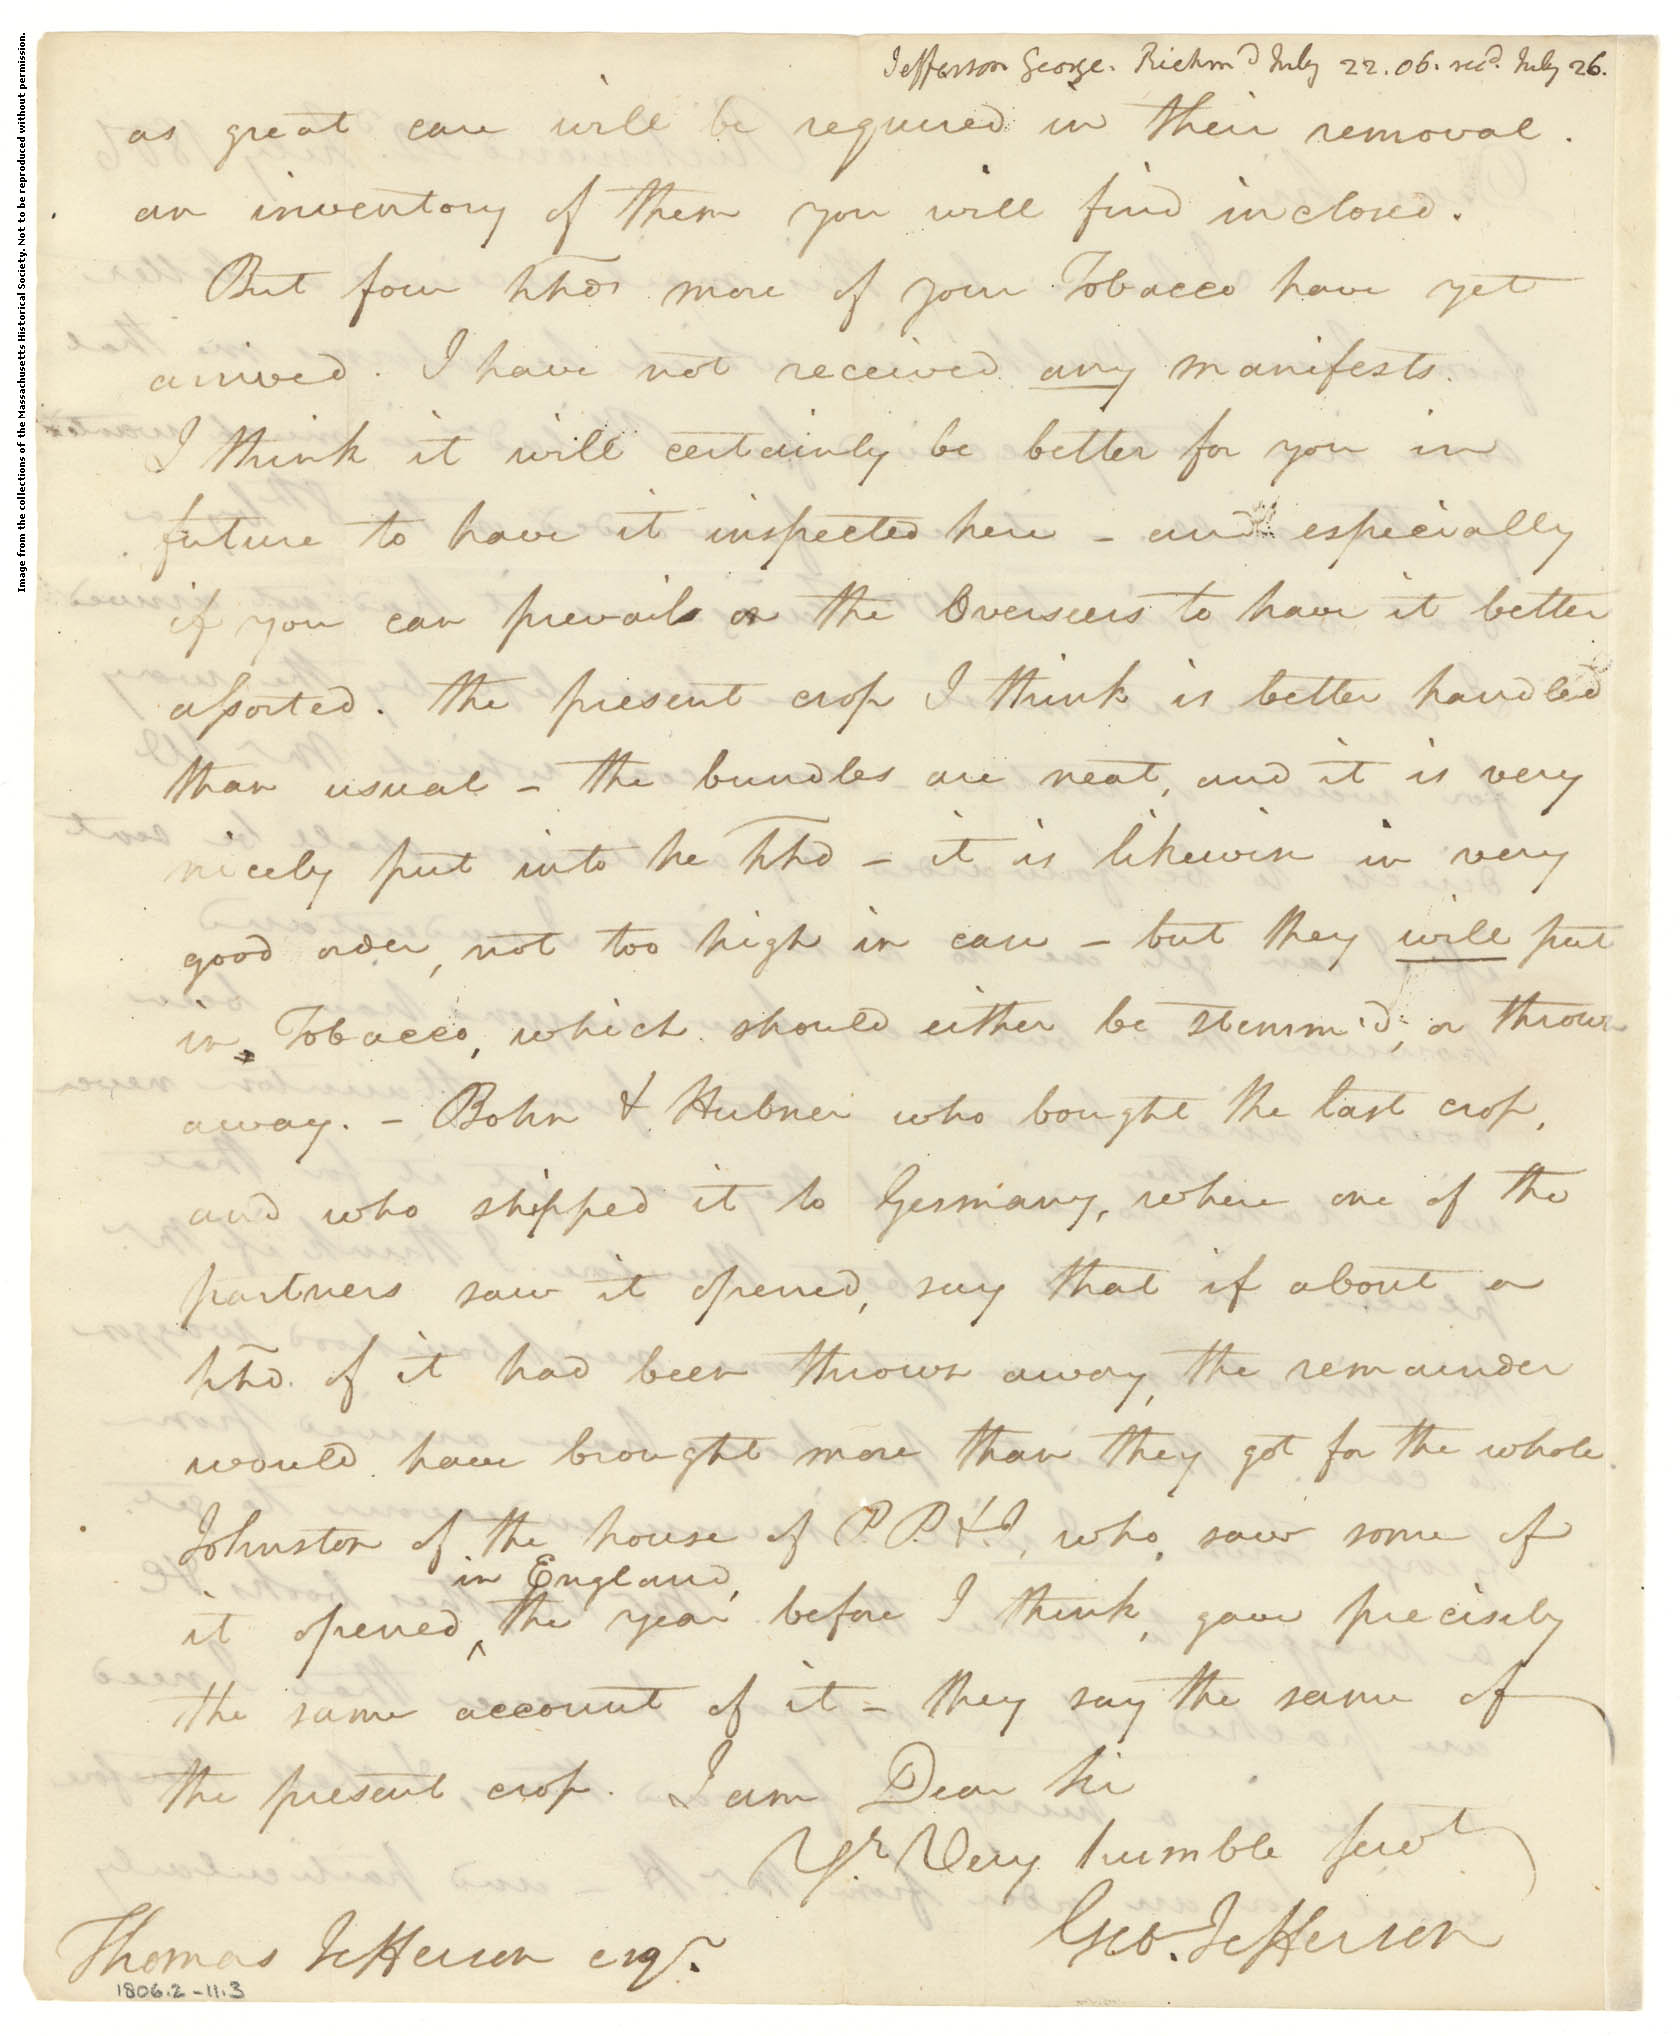 Image from the collections of the Massachusetts Historical Society. Not to be reproduced without permission.
Jefferson George. Richmd July 22. 06. recd. July 26.
as great care will be required in their removal.
an inventory of them you will find inclosed.
But four hhds more of your Tobacco have yet
arrived. I have not received any manifests.
I think it will certainly be better for you in
future to have it inspected here - and especially
if you can prevail on the Overseers to have it better
assorted. the present crop I think is better handled
than usual - the bundles are neat, and it is very
nicely put into he hhd - it is likewise in very
good order, not too high in case - but they will put
in Tobacco, which should either be stemm'd, or thrown
away. - Bohn & Hubner who bought the last crop,
and who shipped it to Germany, where one of the
partners saw it opened, say that if about a
hhd. of it had been thrown away, the remainder
would have brought more than they got for the whole.
Johnston of the house of P. P. & J, who saw some of
in England,
it opened, ^ the year before I think, gave precisely
the same account of it - they say the same of
the present crop. I am Dear Sir
Yr. Very humble servt
Geo. Jefferson
Thomas Jefferson esqr.
1806.2-11.3